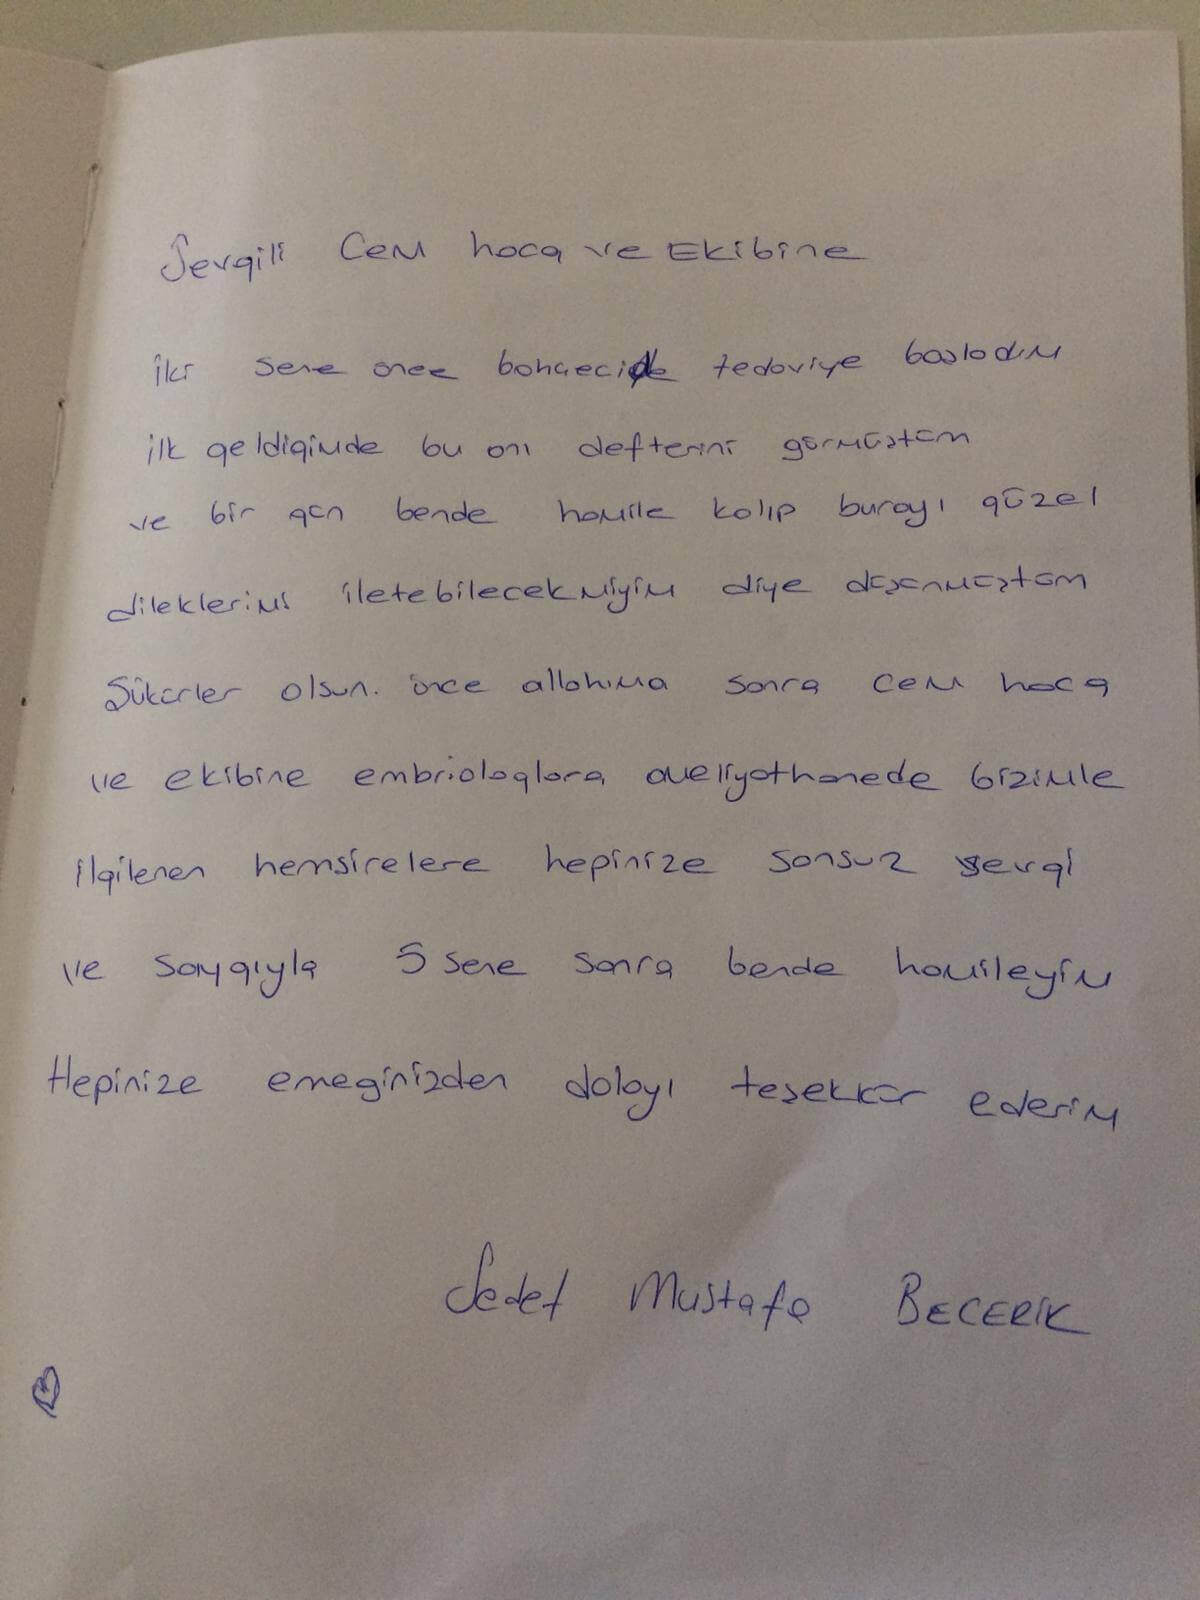 Sevgili Cem hoca ve Ekibine
iki sene önce bahçecide tedaviye başladım
ilk geldiğimde bu anı defterini görmüştüm
ve bir gün bende hamile kalıp burayı güzel
dileklerimi iletebilecekmiyim diye düşünmüştüm
Şükürler olsun. önce allahıma sonra cem hoca
ve ekibine embriologlara ameliyathanede bizimle
ilgilenen hemsirelere hepinize sonsuz sevgi
ve saygıyla 5 sene sonra bende hamileyim
Hepinize emeginizden dolayı teşekkür ederim
Sedef Mustafa BECERİK